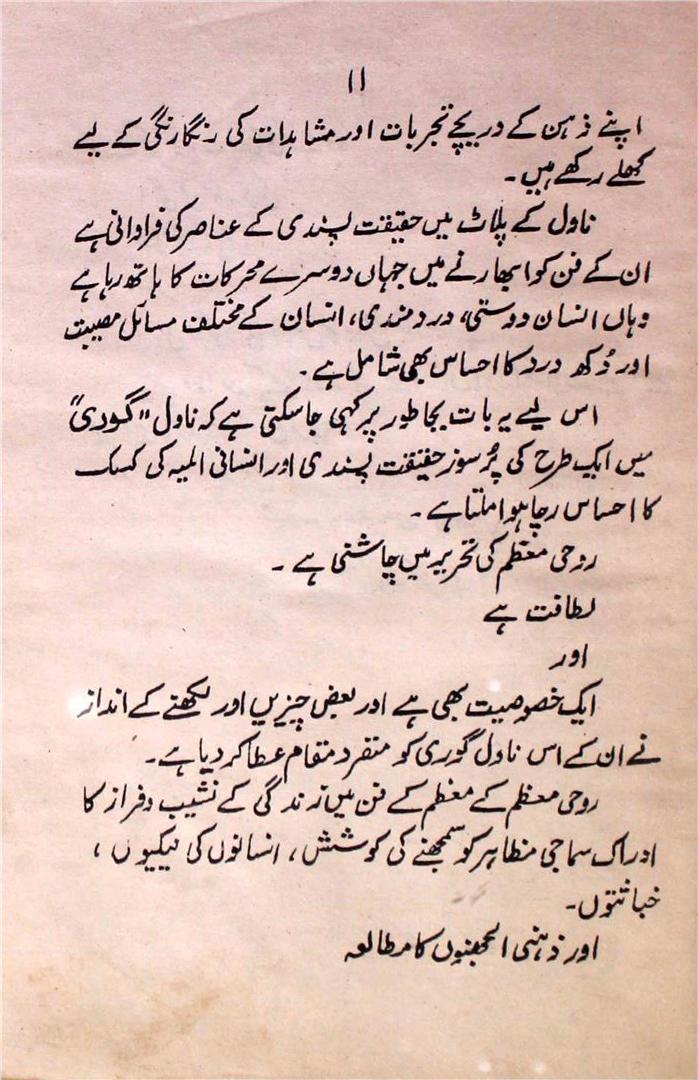 ۱۱
اپنے ذہن کے دریچے تجربات اور مشاہدات کی رنگارنگی کے لیے
کھلے رکھے ہیں۔
ناول کے پلاٹ میں حقیقت پسندی کے عناصر کی فراوانی ہے
ان کے فن کو ابھارنے میں جہاں دوسرے محرکات کا ہاتھ رہا ہے
وہاں انسان دوستی، دردمندی، انسان کے مختلف مسائل مصیبت
اور دُکھ درد کا احساس بھی شامل ہے۔
اس لیے یہ بات بجا طور پر کہی جا سکتی ہے کہ ناول "گوری"
میں ایک طرح کی پُر سوز حقیقت پسندی اور انسانی المیہ کی کسک
کا احساس رچا ہوا ملتا ہے۔
روحی معظم کی تحریر میں چاشنی ہے۔
لطافت ہے
اور
ایک خصوصیت بھی ہے اور بعض چیزیں اور لکھنے کے انداز
نے ان کے اس ناول گوری کو منفرد مقام عطا کر دیا ہے۔
روحی معظم کے معظم کے فن میں زندگی کے نشیب و فراز کا
ادراک سماجی مظاہر کو سمجھنے کی کوشش، انسانوں کی نیکیوں،
خباثتوں۔
اور ذہنی الجھنوں کا مطالعہ